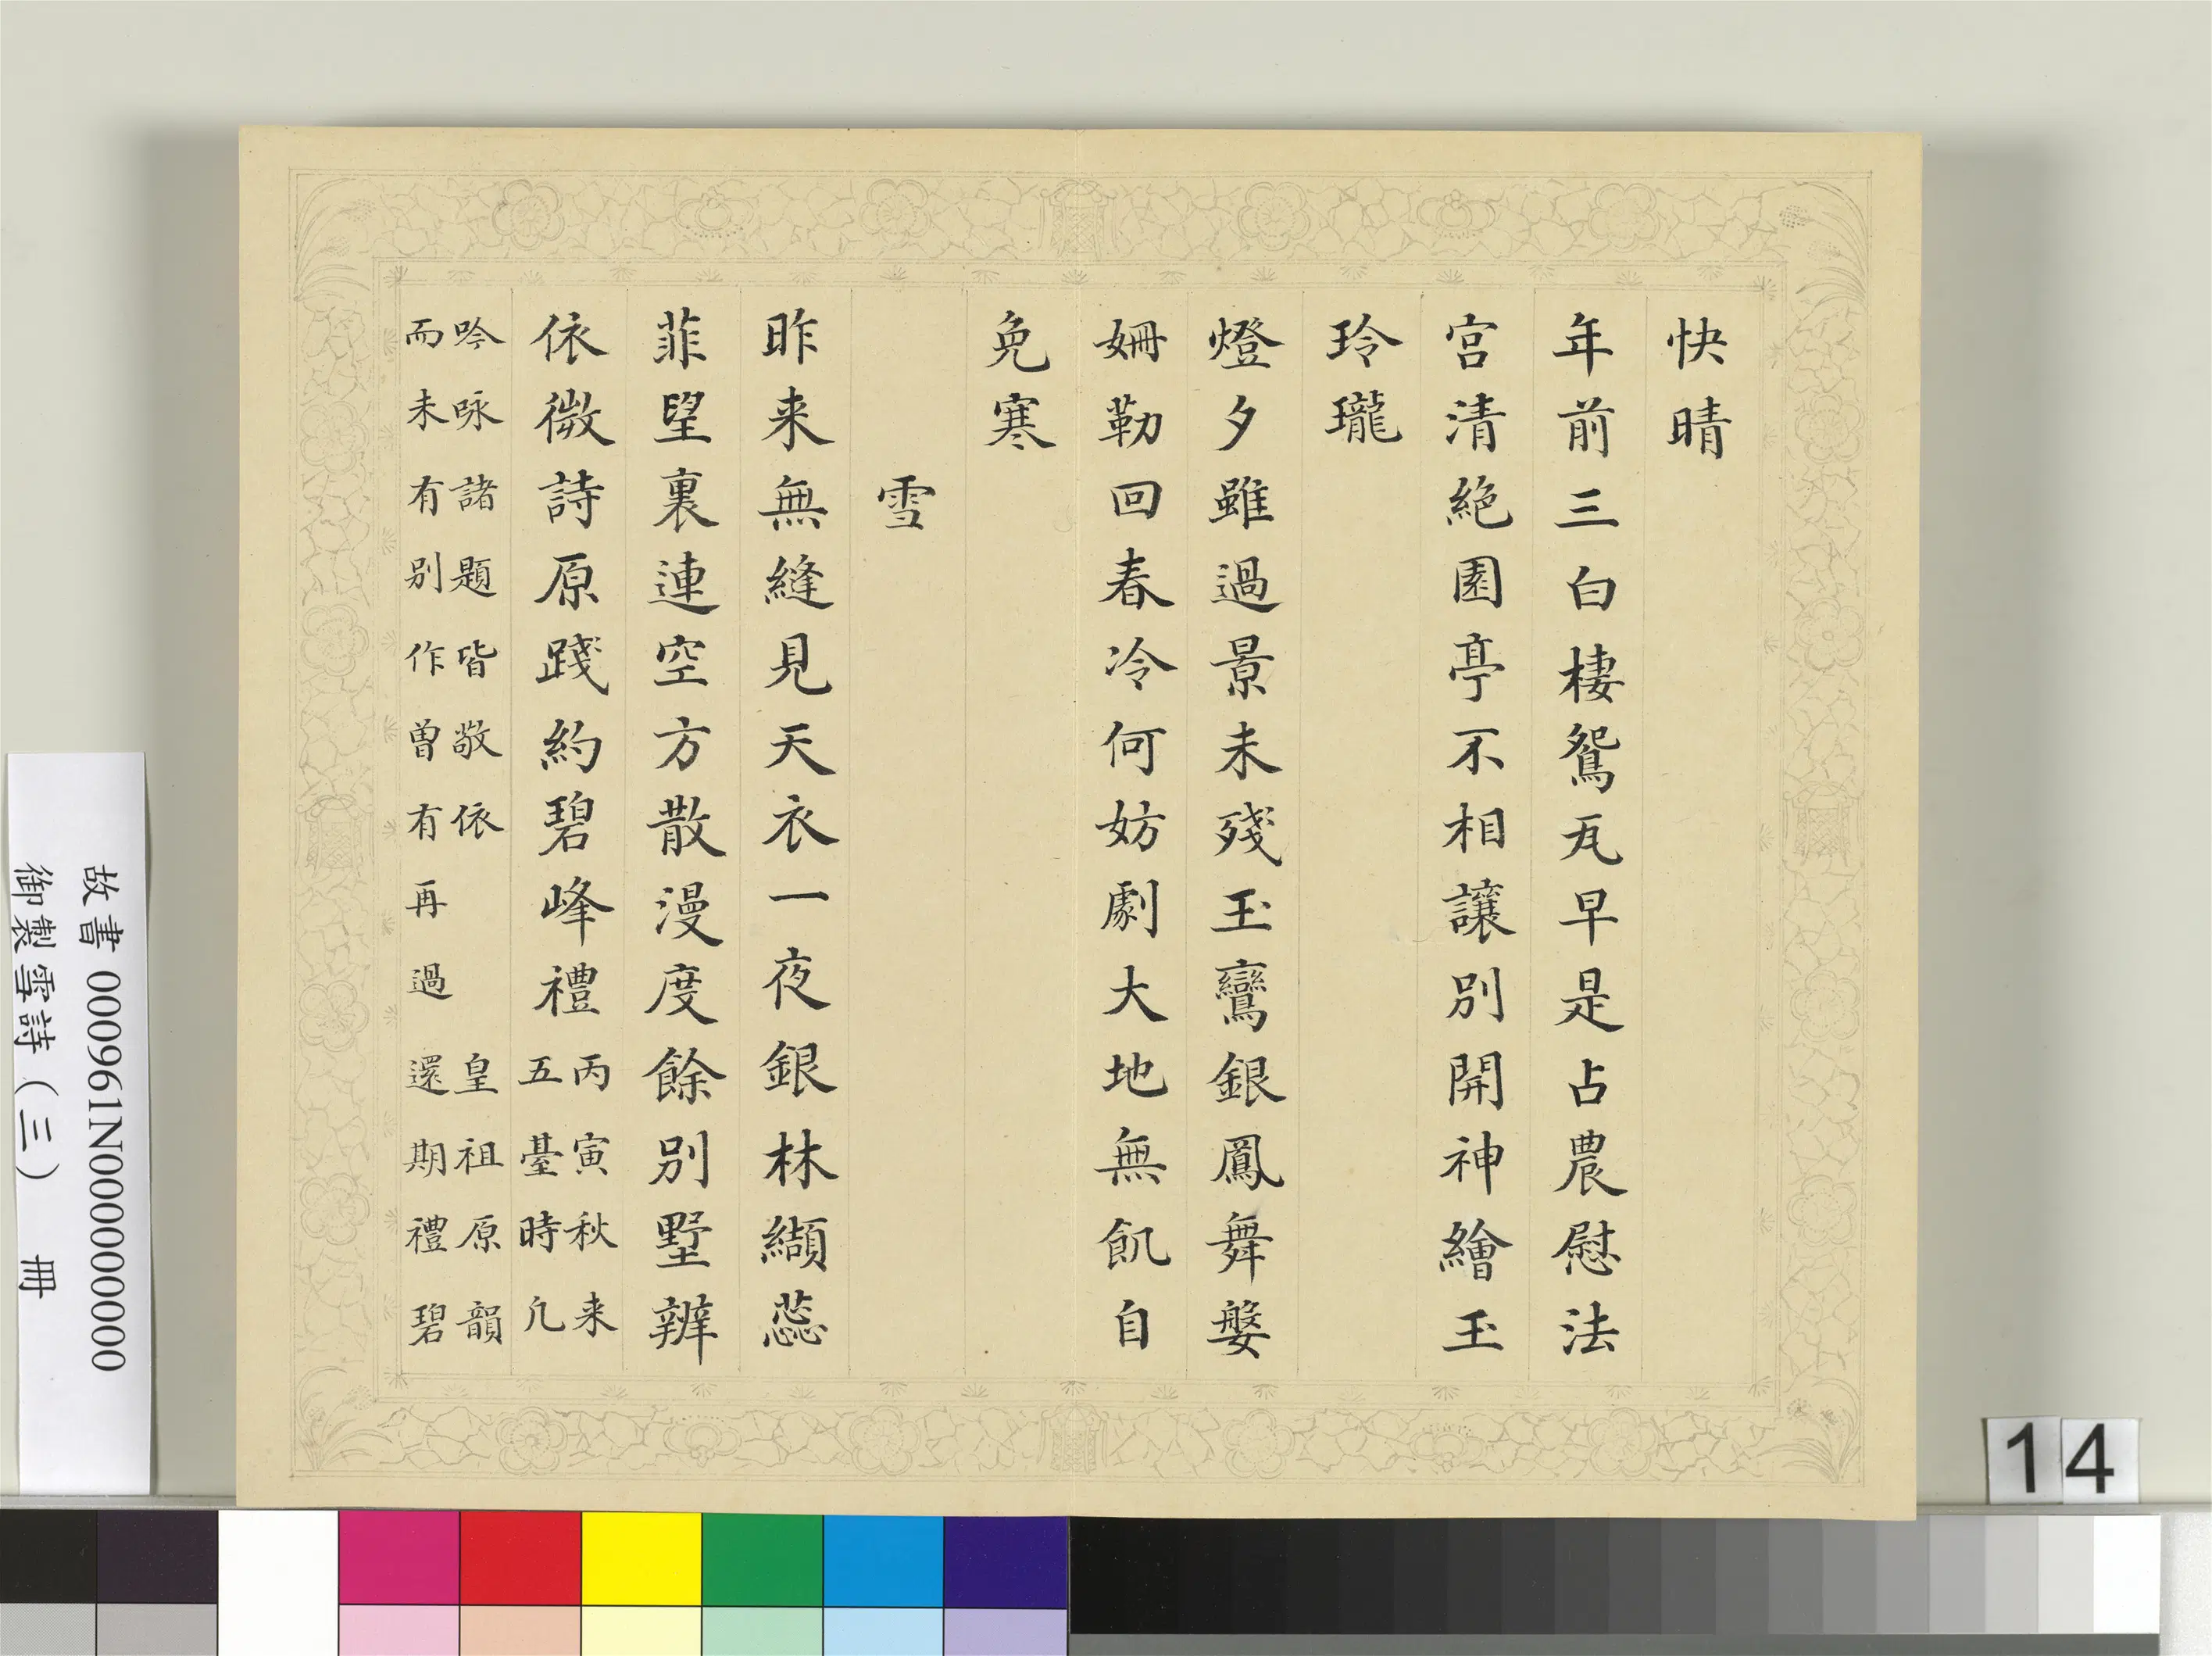 快晴
年前三白棲鴛瓦早是占農慰法
宮清絶園亭不相讓别開神繪玉
玲瓏
燈夕雖過景未殘玉鸞銀鳳舞媻
姍勒回春冷何妨劇大地無飢自
免寒
雪
昨来無縫見天衣一夜銀林纈蕊
菲望裏連空方散漫度餘别墅辨
依微詩原踐約碧峰禮
丙寅秋来
五臺時凢
吟咏諸題皆敬依
皇祖原韻
而未有别作曽有再過
還期禮碧
故書 000961N000000000
御製雪詩（三） 冊
14